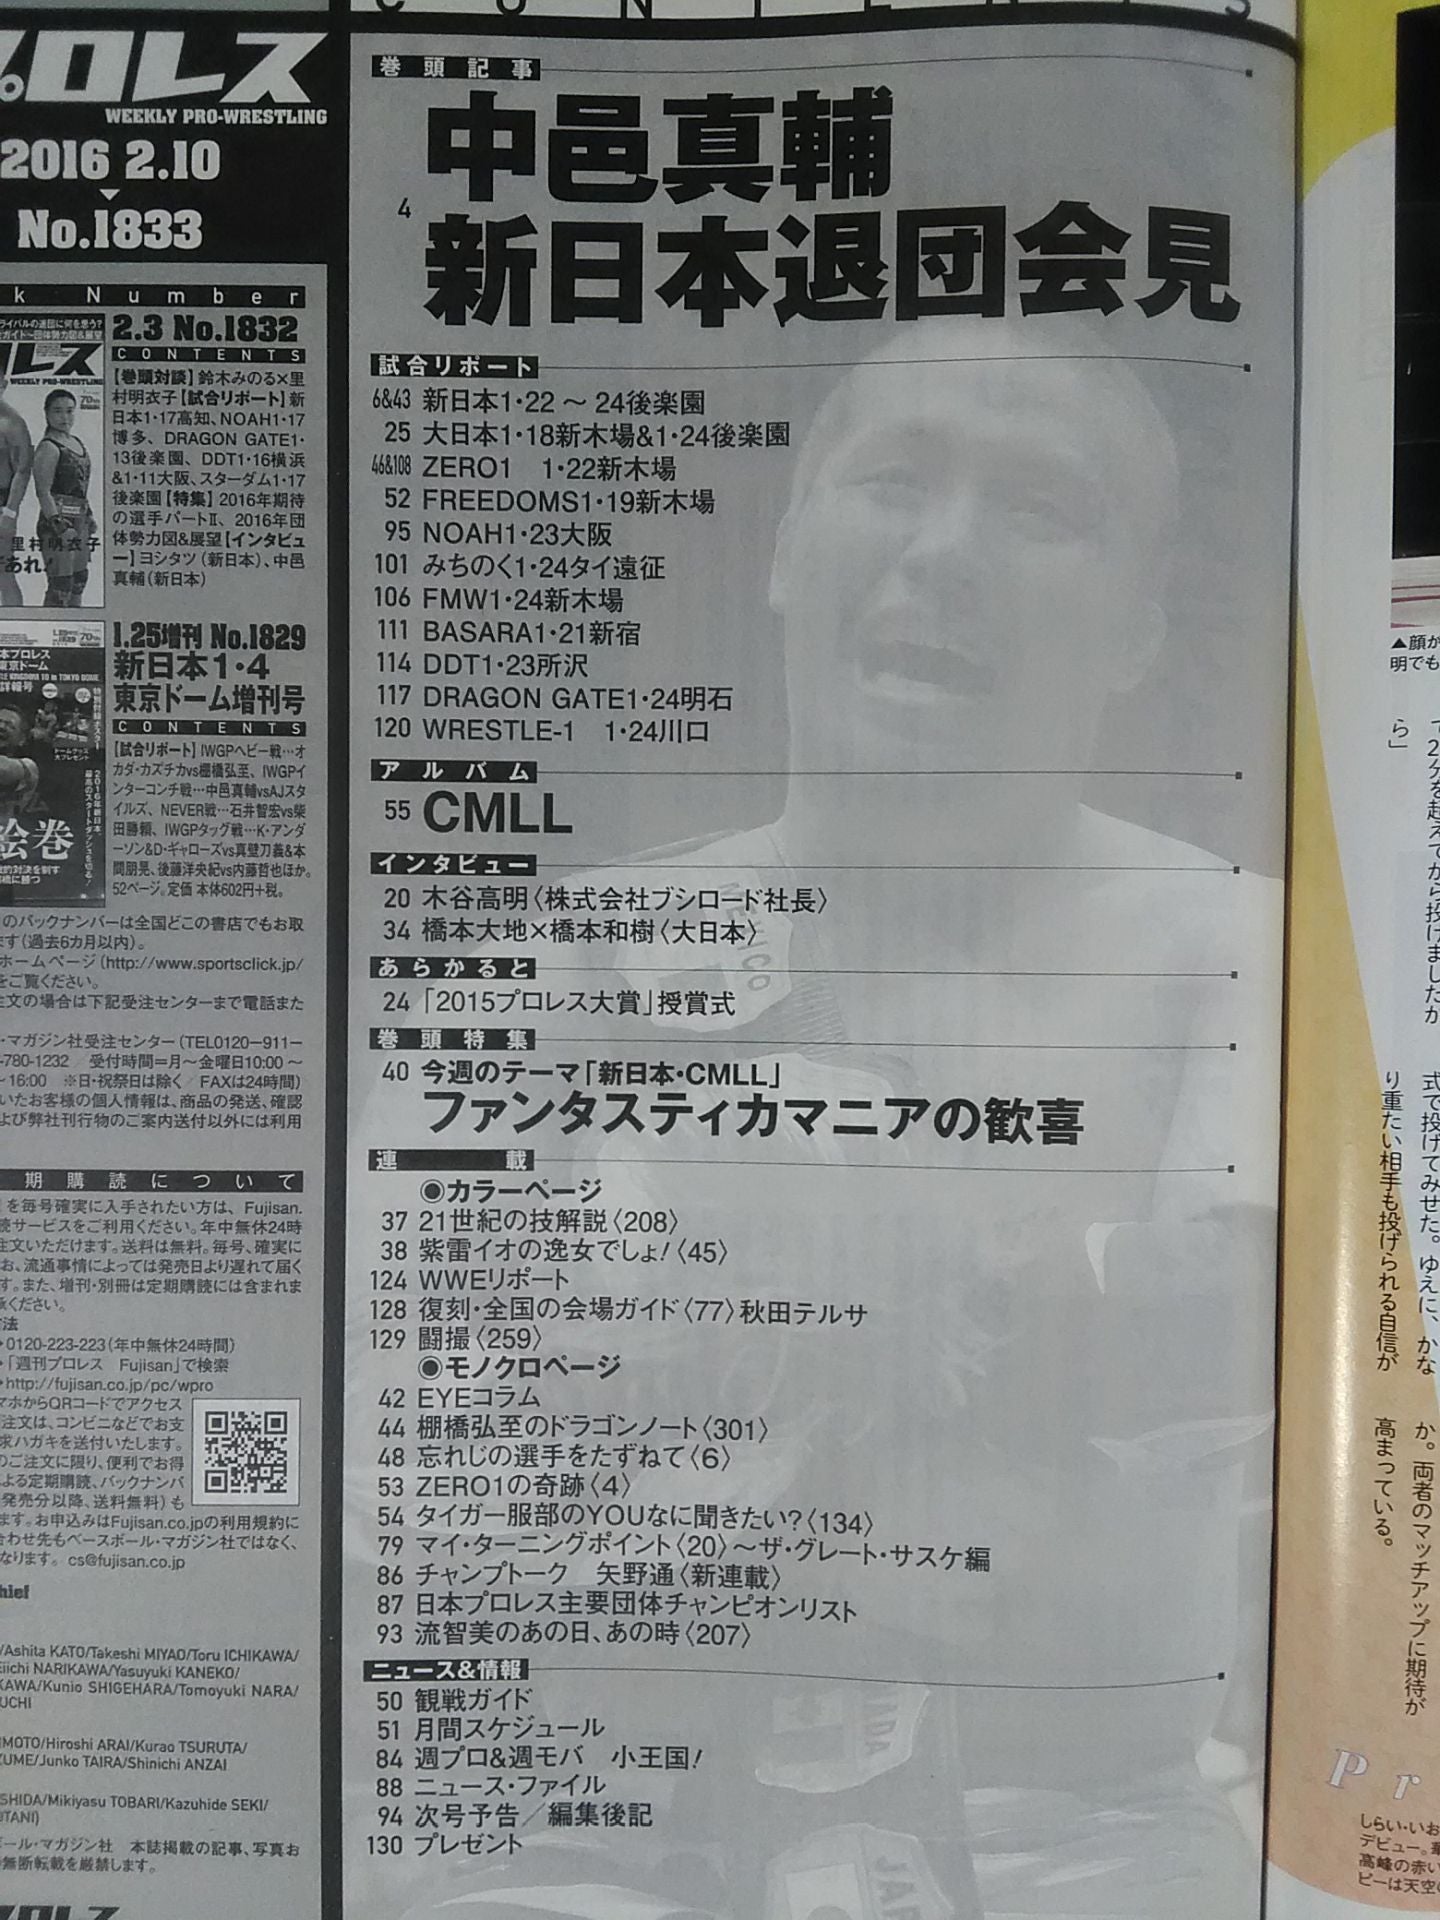 CONTENTS
プロレス
WEEKLY PRO-WRESTLING
2016 2.10
No.1833
k Number
2.3 No.1832
CONTENTS
【巻頭対談】鈴木みのる×里
村明衣子【試合リポート】新
日本1・17高知、NOAH1・17
博多、DRAGON GATE1・
13後楽園、DDT1・16横浜
&1・11大阪、スターダム1・17
後楽園【特集】2016年期待
の選手パートⅡ、2016年団
体勢力図&展望【インタビュ
ー】ヨシタツ(新日本)、中邑
真輔(新日本)
里村明衣子
1.25増刊 No.1829
新日本1・4
東京ドーム増刊号
CONTENTS
【試合リポート】IWGPヘビー戦…オ
カダ・カズチカvs棚橋弘至、IWGPイ
ンターコンチ戦…中邑真輔vsAJスタ
イルズ、NEVER戦…石井智宏vs柴
田勝頼、IWGPタッグ戦…K・アンダ
ーソン&D・ギャローズvs真壁刀義&本
間朋晃、後藤洋央紀vs内藤哲也ほか。
52ページ。定価 本体602円+税。
絵巻
のバックナンバーは全国どこの書店でもお取
ます(過去6カ月以内)。
ホームページ(http://www.sportsclick.jp/
をご覧ください。
注文の場合は下記受注センターまで電話また
・マガジン社受注センター(TEL0120-911-
-780-1232／受付時間=月〜金曜日10:00〜
〜16:00 ※日・祝祭日は除く／FAXは24時間)
いたお客様の個人情報は、商品の発送、確認
よび弊社刊行物のご案内送付以外には利用
期購読について
を毎号確実に入手されたい方は、Fujisan.
読サービスをご利用ください。年中無休24時
注文いただけます。送料は無料。毎号、確実に
お、流通事情によっては発売日より遅れて届く
す。また、増刊・別冊は定期購読には含まれま
承ください。
方法
0120-223-223(年中無休24時間)
「週刊プロレス Fujisan」で検索
http://fujisan.co.jp/pc/wpro
マホからQRコードでアクセス
注文は、コンビニなどでお支
求ハガキを送付いたします。
のご注文に限り、便利でお得
よる定期購読、バックナンバ
発売分以降、送料無料)も
ます。お申込みはFujisan.co.jpの利用規約に
合わせ先もベースボール・マガジン社ではなく、
なります。cs@fujisan.co.jp
hief
/Ashita KATO/Takeshi MIYAO/Toru ICHIKAWA/
Eiichi NARIKAWA/Yasuyuki KANEKO/
KAWA/Kunio SHIGEHARA/Tomoyuki NARA/
UCHI
IMOTO/Hiroshi ARAI/Kurao TSURUTA/
UME/Junko TAIRA/Shinichi ANZAI
SHIDA/Mikiyasu TOBARI/Kazuhide SEKI/
OTANI)
ボール・マガジン社 本誌掲載の記事、写真お
無断転載を厳禁します。
巻頭記事
4 中邑真輔
新日本退団会見
試合リポート
6&43 新日本1・22〜24後楽園
25 大日本1・18新木場&1・24後楽園
46&108 ZERO1 1・22新木場
52 FREEDOMS1・19新木場
95 NOAH1・23大阪
101 みちのく1・24タイ遠征
106 FMW1・24新木場
111 BASARA1・21新宿
114 DDT1・23所沢
117 DRAGON GATE1・24明石
120 WRESTLE-1 1・24川口
アルバム
55 CMLL
インタビュー
20 木谷高明〈株式会社ブシロード社長〉
34 橋本大地×橋本和樹〈大日本〉
あらかると
24「2015プロレス大賞」授賞式
巻頭特集
40 今週のテーマ「新日本・CMLL」
ファンタスティカマニアの歓喜
連載
◉カラーページ
37 21世紀の技解説〈208〉
38 紫雷イオの逸女でしょ!〈45〉
124 WWEリポート
128 復刻・全国の会場ガイド〈77〉秋田テルサ
129 闘撮〈259〉
◉モノクロページ
42 EYEコラム
44 棚橋弘至のドラゴンノート〈301〉
48 忘れじの選手をたずねて〈6〉
53 ZERO1の奇跡〈4〉
54 タイガー服部のYOUなに聞きたい?〈134〉
79 マイ・ターニングポイント〈20〉〜ザ・グレート・サスケ編
86 チャンプトーク 矢野通〈新連載〉
87 日本プロレス主要団体チャンピオンリスト
93 流智美のあの日、あの時〈207〉
ニュース&情報
50 観戦ガイド
51 月間スケジュール
84 週プロ&週モバ 小王国!
88 ニュース・ファイル
94 次号予告／編集後記
130 プレゼント
MEXICO
▲顔が
明でも
て2分を超えてから投げましたか
ら」
式で投げてみせた。ゆえに、かな
り重たい相手も投げられる自信が
か。両者のマッチアップに期待が
高まっている。
Pr
しらい・いお
デビュー。華
高峰の赤い
ビーは天空の